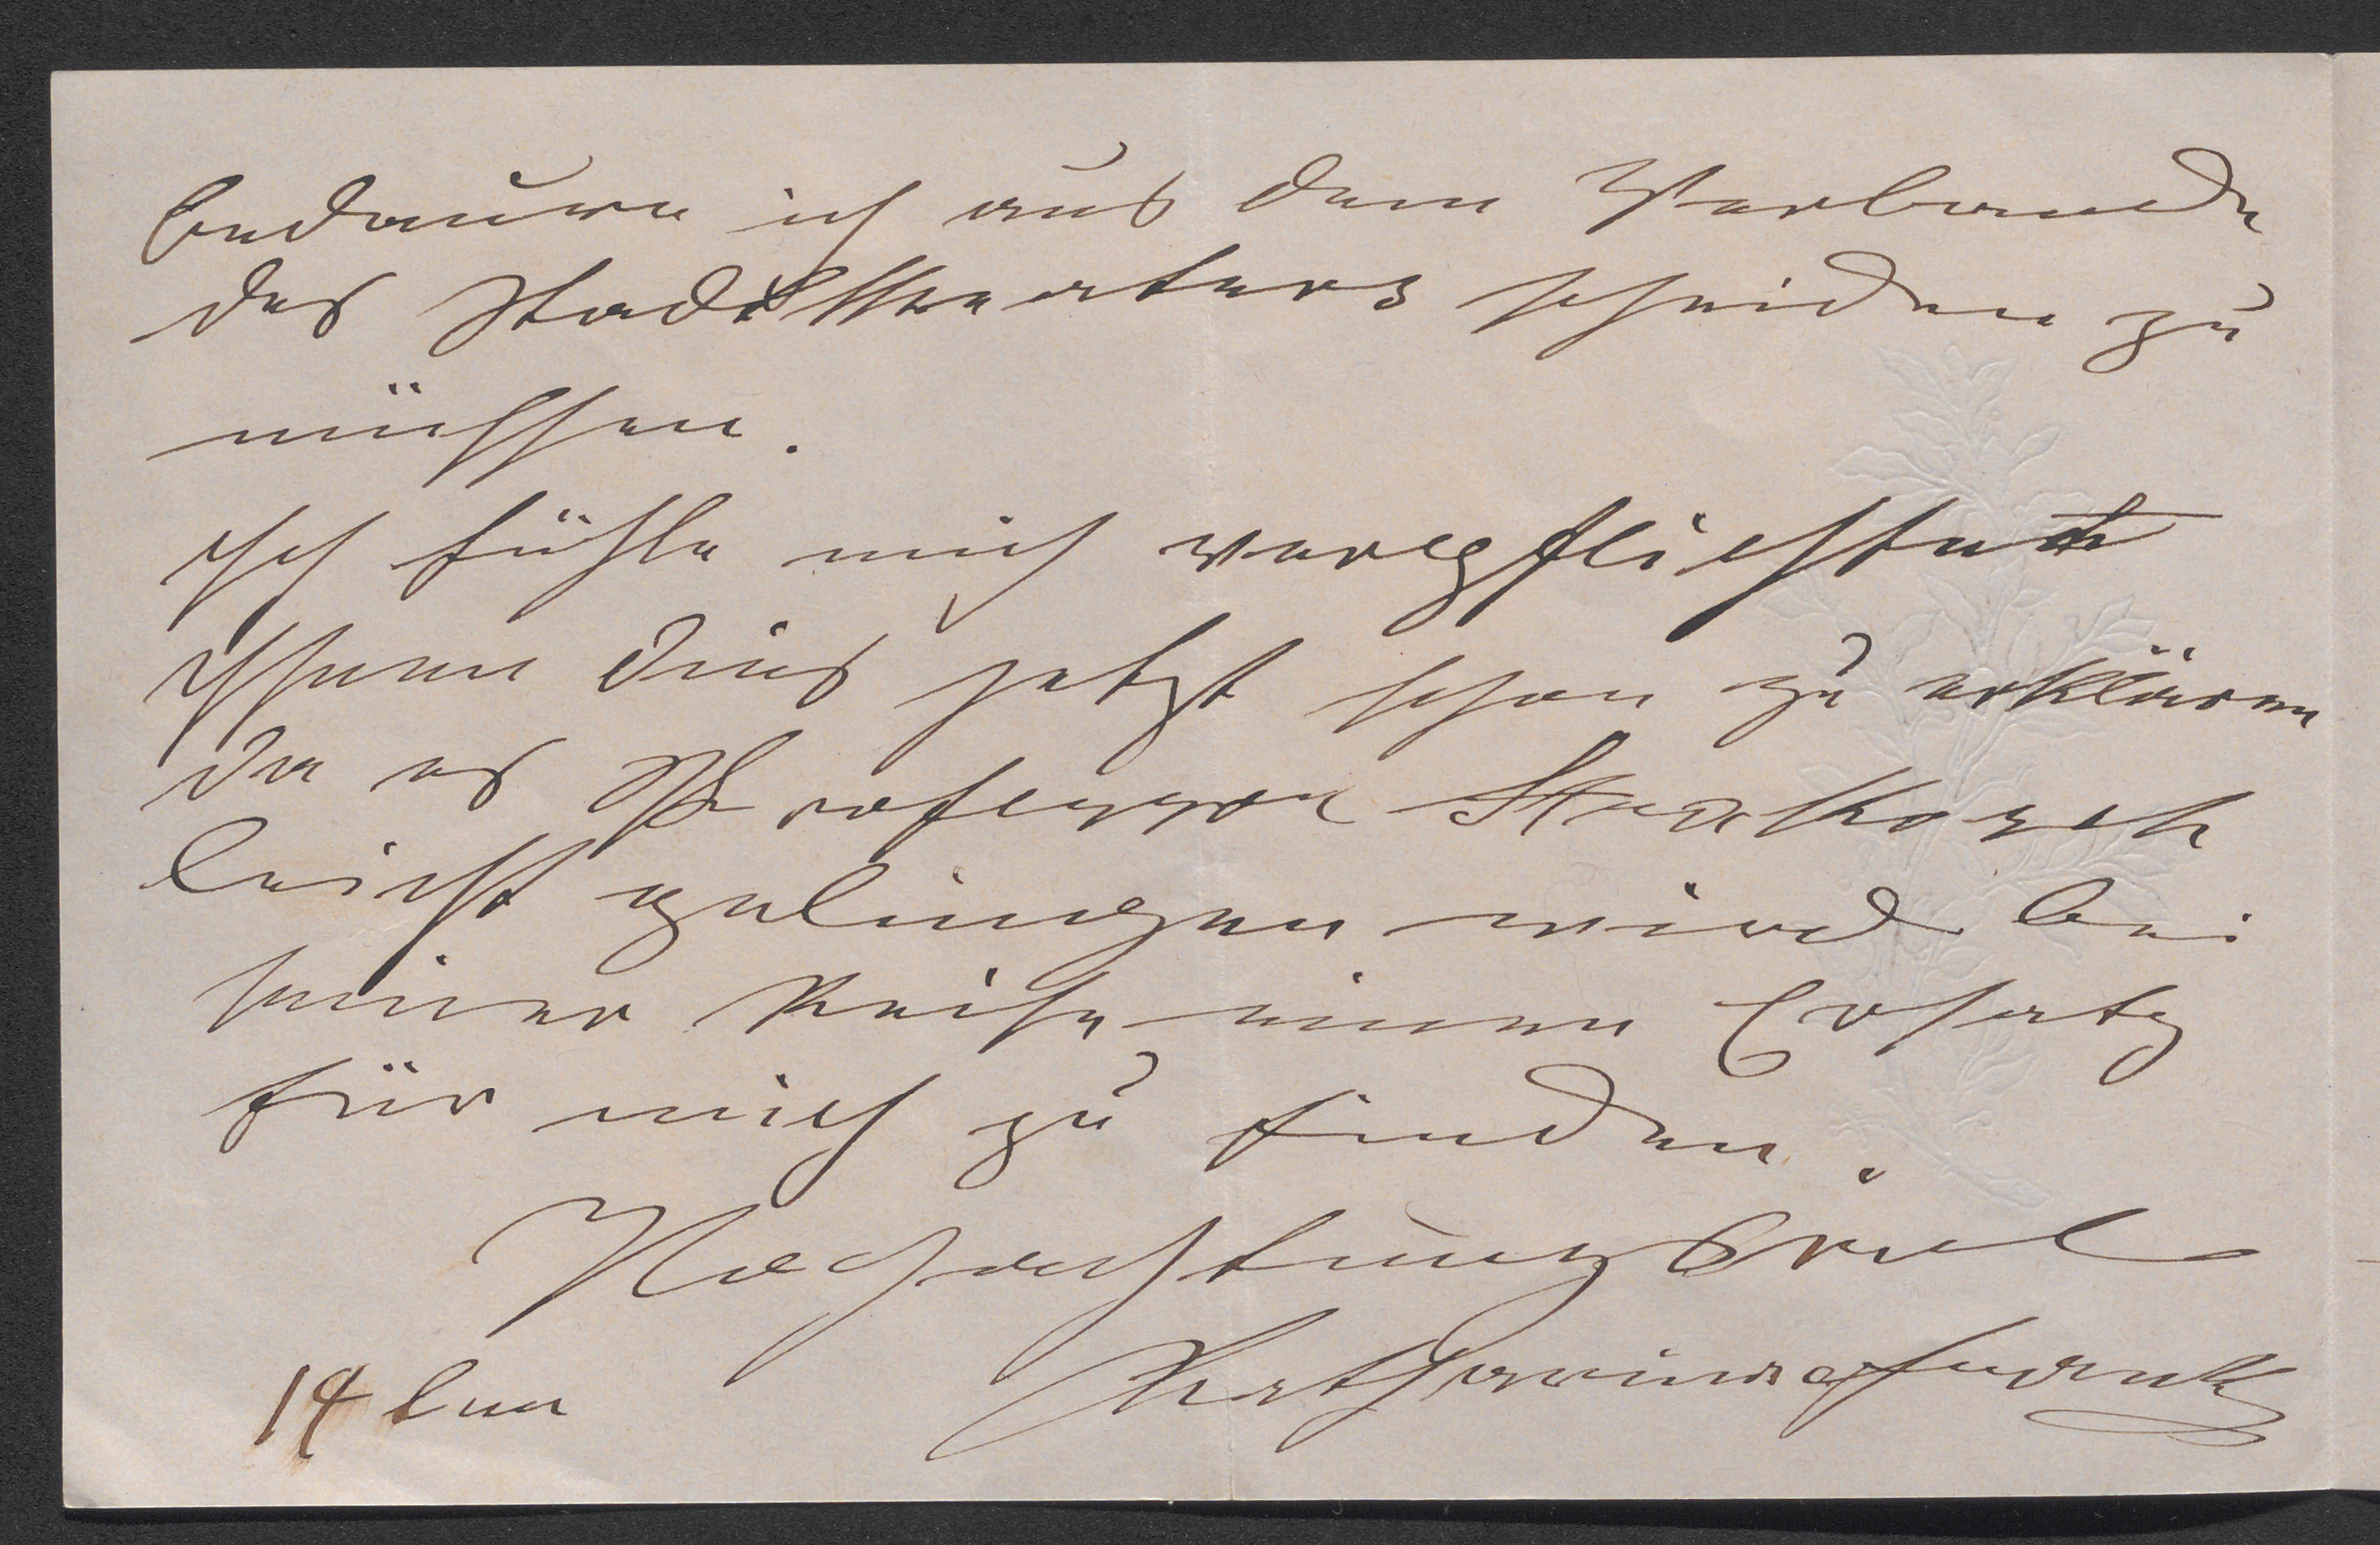 bedauere ich aus dem Verbande
des Stadttheaters scheiden zu
müssen.
Ich fühle mich verpflichtet
Ihnen dies jetzt schon zu erklären
da es Professor Strakosch
leicht gelingen wird bei
seiner Reise einen Ersatz
für mich zu finden.
Hochachtungsvoll
Katharina Frank
14ten